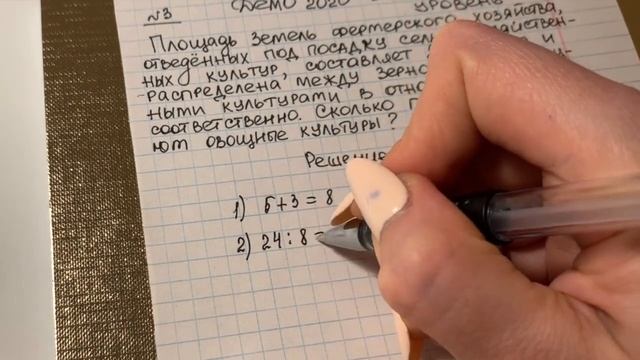 №3 ДЕМО 2020 УРОВЕНЬ
ПЛОЩАДЬ ЗЕМЕЛЬ ФЕРМЕРСКОГО ХОЗЯЙСТВА,
ОТВЕДЁННЫХ ПОД ПОСАДКУ
НЫХ КУЛЬТУР, СОСТАВЛЯЕТ И
РАСПРЕДЕЛЕНА МЕЖДУ
НЫМИ КУЛЬТУРАМИ В
СООТВЕТСТВЕННО. СКОЛЬКО
ЮТ ОВОЩНЫЕ КУЛЬТУРЫ?
РЕШЕНИЕ
1) 5+3=8
2) 24:8=